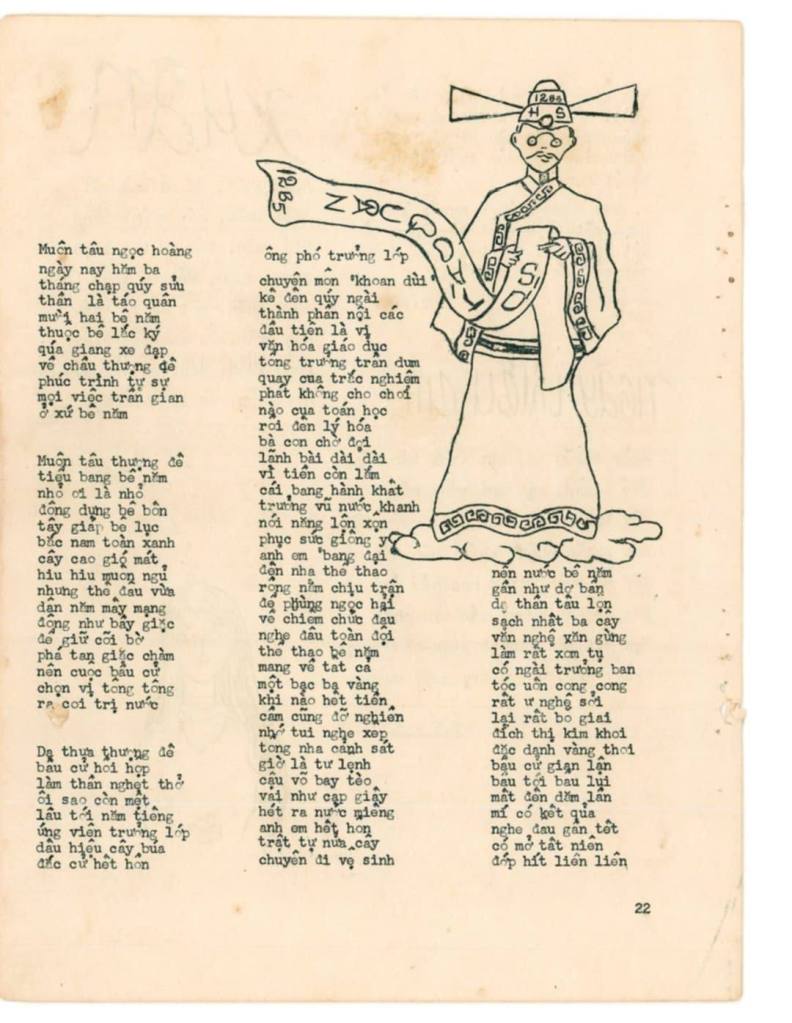 12B5
H S
SỚ TÁO QUÂN
12B5
Muôn tâu ngọc hoàng
ngày nay hăm ba
tháng chạp qúy sửu
thần là táo quân
mười hai bê năm
thuộc bê lắc ký
qúa giang xe đạp
về chầu thượng đế
phúc trình tự sự
mọi việc trần gian
ở xứ bê năm
Muôn tâu thượng đế
tiểu bang bê năm
nhỏ ơi là nhỏ
đông dụng bê bốn
tây giáp bê lục
bắc nam toàn xanh
cây cao gió mát
hiu hiu muốn ngủ
nhưng thế đâu vừa
dân năm mấy mạng
đông như bầy giặc
để giữ cõi bờ
phá tan giặc chàm
nên cuộc bầu cử
chọn vị tổng tống
ra coi trị nước
Dạ thưa thượng đế
bầu cử hồi hộp
làm thần nghẹt thở
ôi sao còn mệt
lâu tới năm tiếng
ứng viên trưởng lớp
dấu hiệu cây búa
đắc cử hết hồn
ông phó trưởng lớp
chuyên môn "khoan dùi"
kế đến qúy ngài
thành phần nội các
đầu tiên là vị
văn hóa giáo dục
tổng trưởng trần dum
quay cua trắc nghiệm
phát không cho chơi
nào cua toán học
rồi đến lý hóa
bà con chờ đợi
lãnh bài dài dài
vì tiền còn lắm
cái bang hành khất
trưởng vũ nước khanh
nói năng lộn xộn
phục sức giống y
anh em "bang đại"
đến nha thể thao
rồng nằm chịu trận
để phùng ngọc hải
về chiếm chức đầu
nghe đâu toàn đội
thể thao bê năm
mang về tất cả
một bạc ba vàng
khi nào hết tiền
cầm cũng đỡ nghiền
nhớ tui nghe xếp
tổng nha cảnh sát
giờ là tư lệnh
cậu võ bay tèo
vai như cạp giấy
hét ra nước miếng
anh em hết hồn
trật tự nửa cây
chuyên đi vệ sinh
nên nước bê năm
gần như dơ bẩn
dạ thần tâu lộn
sạch nhất ba cây
văn nghệ văn gừng
làm rất xôm tụ
có ngài trưởng ban
tóc uốn cong cong
rất ư nghệ sỡi
lại rất bô giai
đích thị kim khôi
đặc danh vàng thoi
bầu cử gian lận
bầu tới bầu lui
mất đến dăm lần
mí có kết qủa
nghe đâu gần tết
có mở tất niên
đớp hít liên liên
22